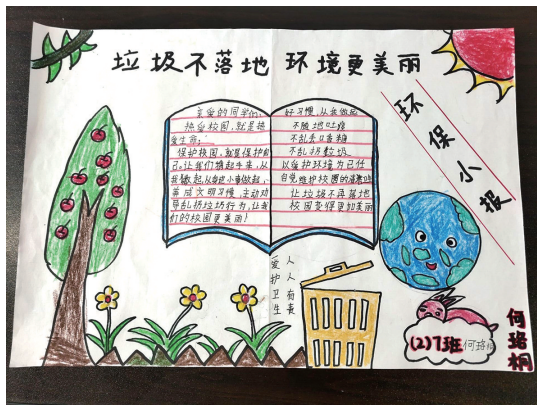 垃圾不落地 环境更美丽
环保小报
亲爱的同学们：
热爱校园，就是热
爱生命；
保护校园，就是保护自
己。让我们携起手来，从
我做起，从身边小事做起，
养成文明习惯，主动劝
导乱扔垃圾行为，让我
们的校园更美丽！
好习惯，从我做起
不随地吐痰
不乱丢口香糖
不乱扔垃圾
以爱护环境为己任
自觉维护校园的清洁
让垃圾不再落地
校园变得更加美丽
爱护卫生
人人有责
(2)7班 何珞桐
何珞桐